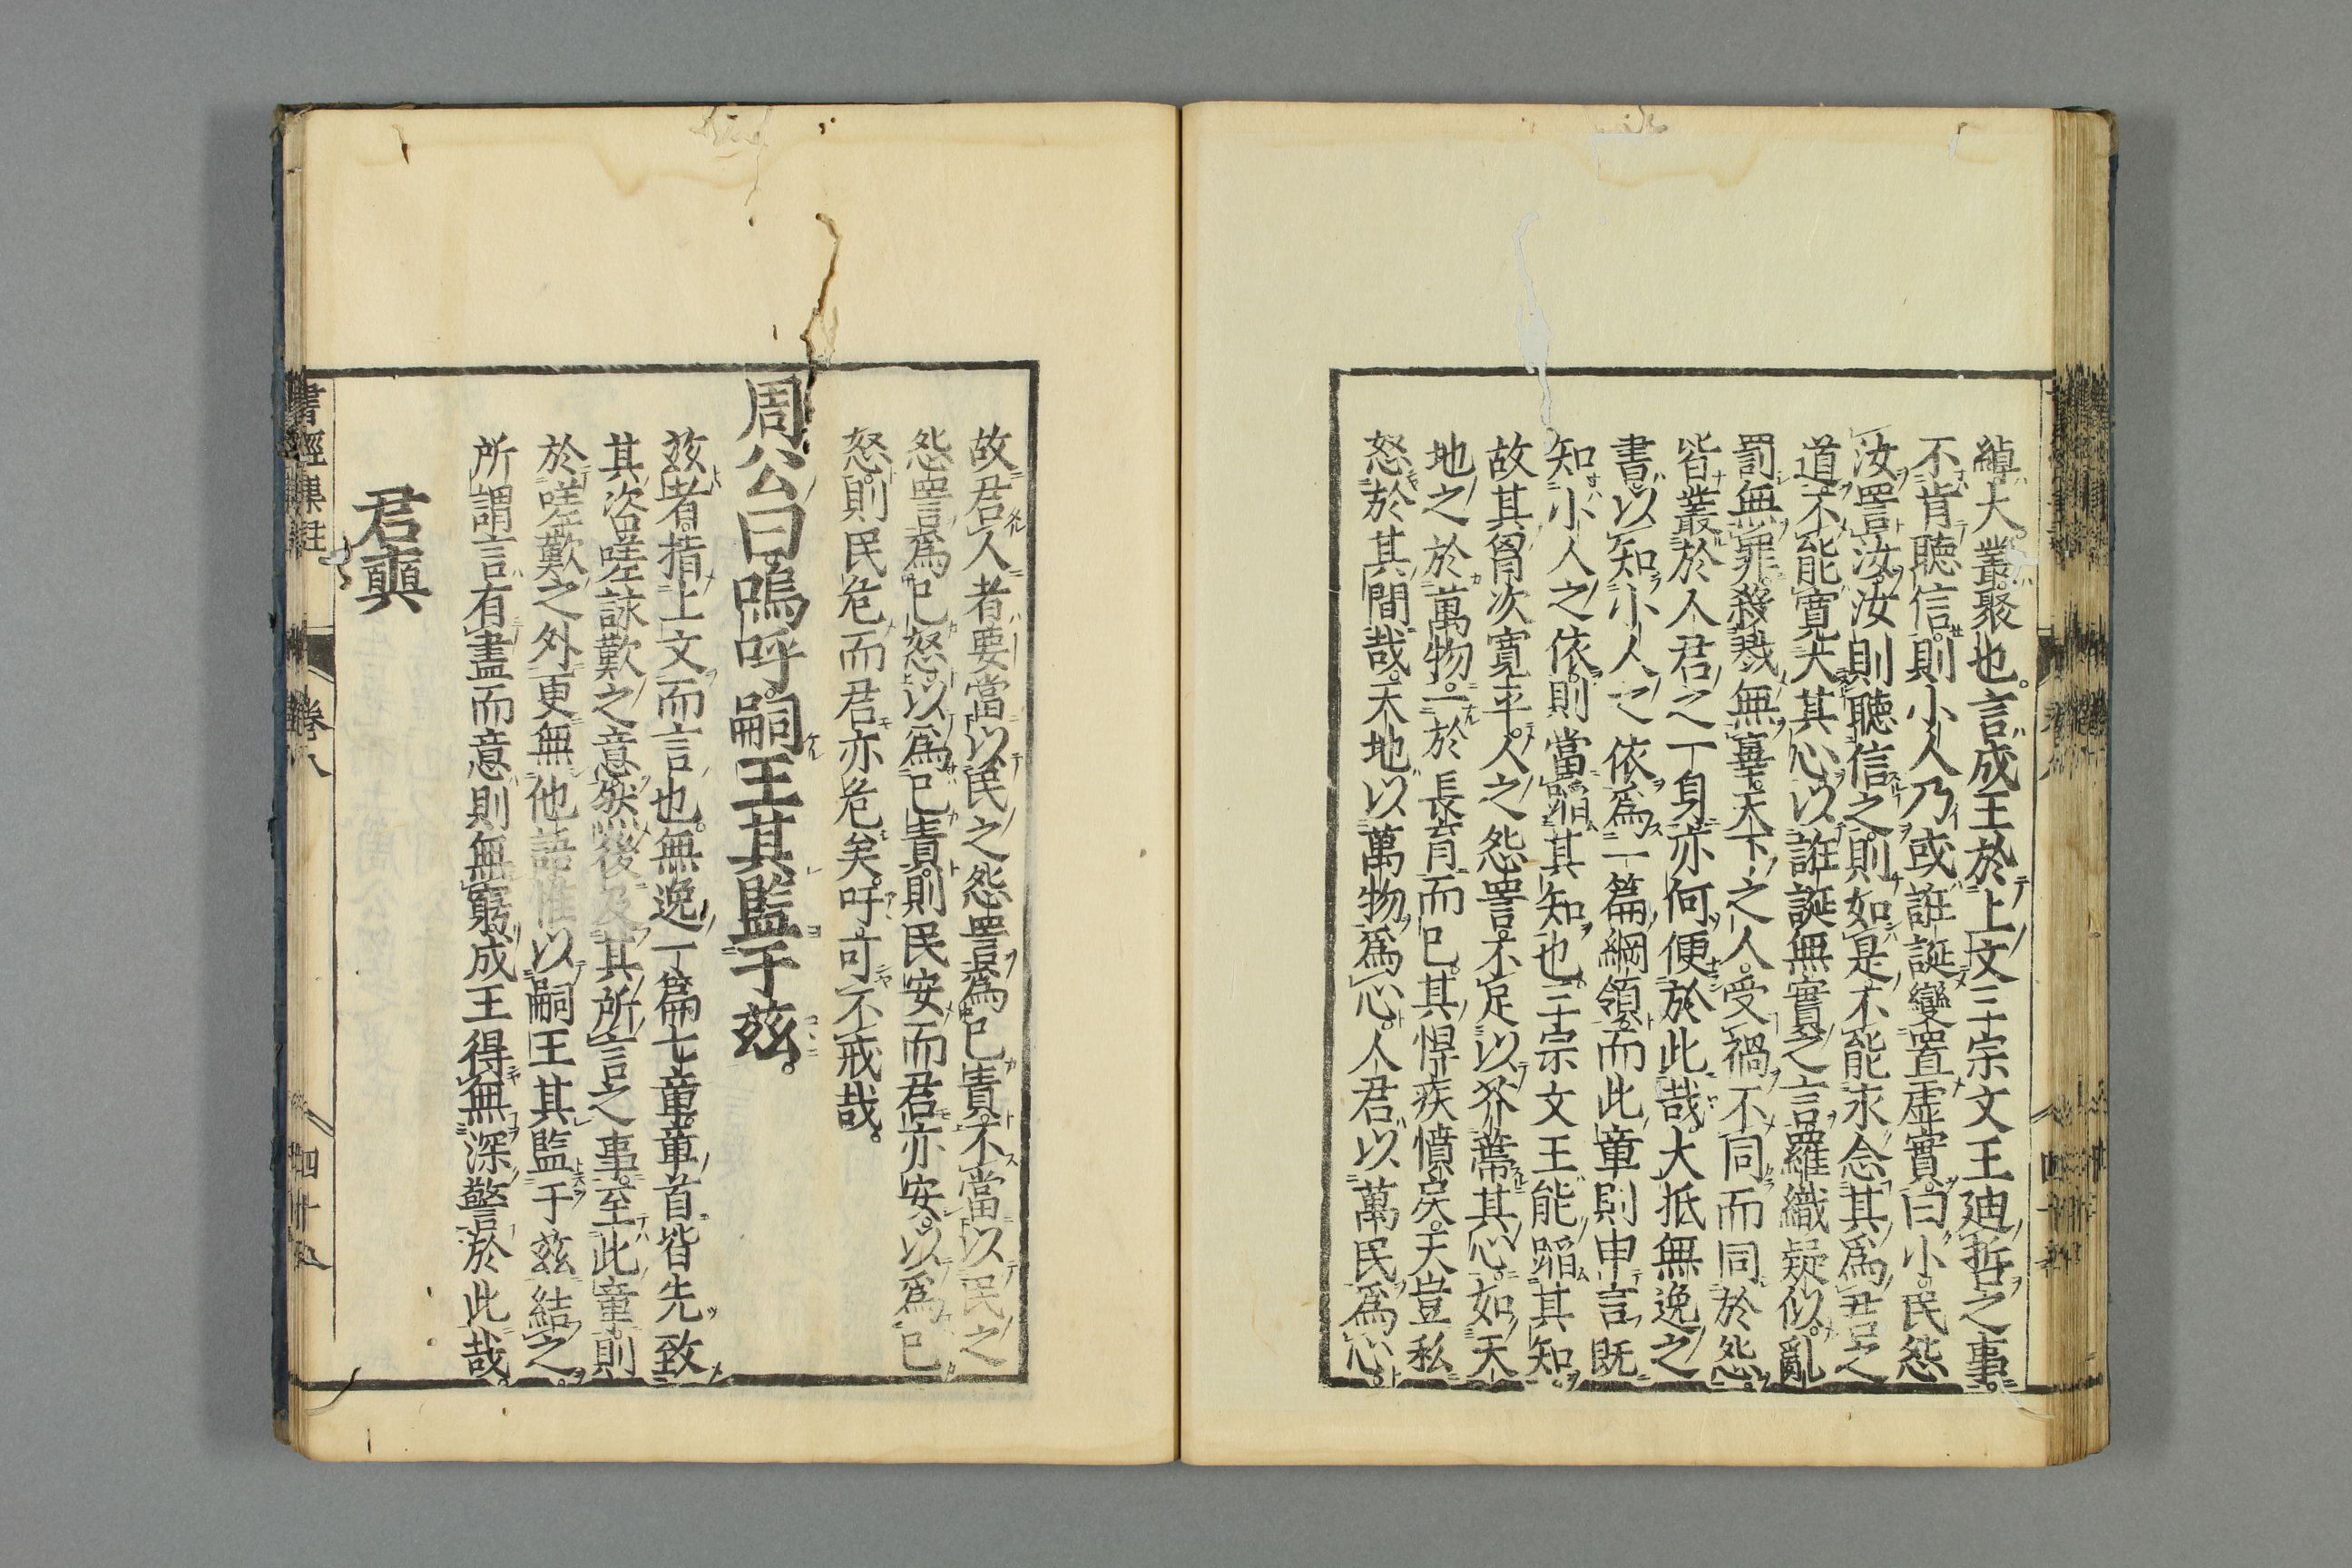 綽大叢聚也言成王於上文三宗文王迪哲之事
不肯聽信則小人乃或誑誕變置虛實曰小民怨
汝詈汝汝則聽信之則如是不能永念其爲君之
道不能寛大其心以誑誕無實之言羅織疑似亂
罰無罪殺戮無辜天下之人受禍不同而同於怨
皆叢於人君之一身亦何便於此哉大抵無逸之
書以知小人之依爲一篇綱領而此章則申言既
知小人之依則當蹈其知也三宗文王能蹈其知
故其胷次寛平人之怨詈不足以芥蔕其心如天
地之於萬物一於長育而已其悍疾憤戾天豈私
怒於其間哉天地以萬物爲心人君以萬民爲心
故君人者要當以民之怨詈爲己責不當以民之
怨詈爲己怒以爲己責則民安而君亦安以爲己
怒則民危而君亦危矣吁可不戒哉
周公曰嗚呼嗣王其監于茲
茲者指上文而言也無逸一篇七章章首皆先致
其咨嗟詠歎之意然後及其所言之事至此章則
於嗟歎之外更無他語惟以嗣王其監于茲結之
所謂言有盡而意則無窮成王得無深警於此哉
君奭
書經集註 卷八 四十五